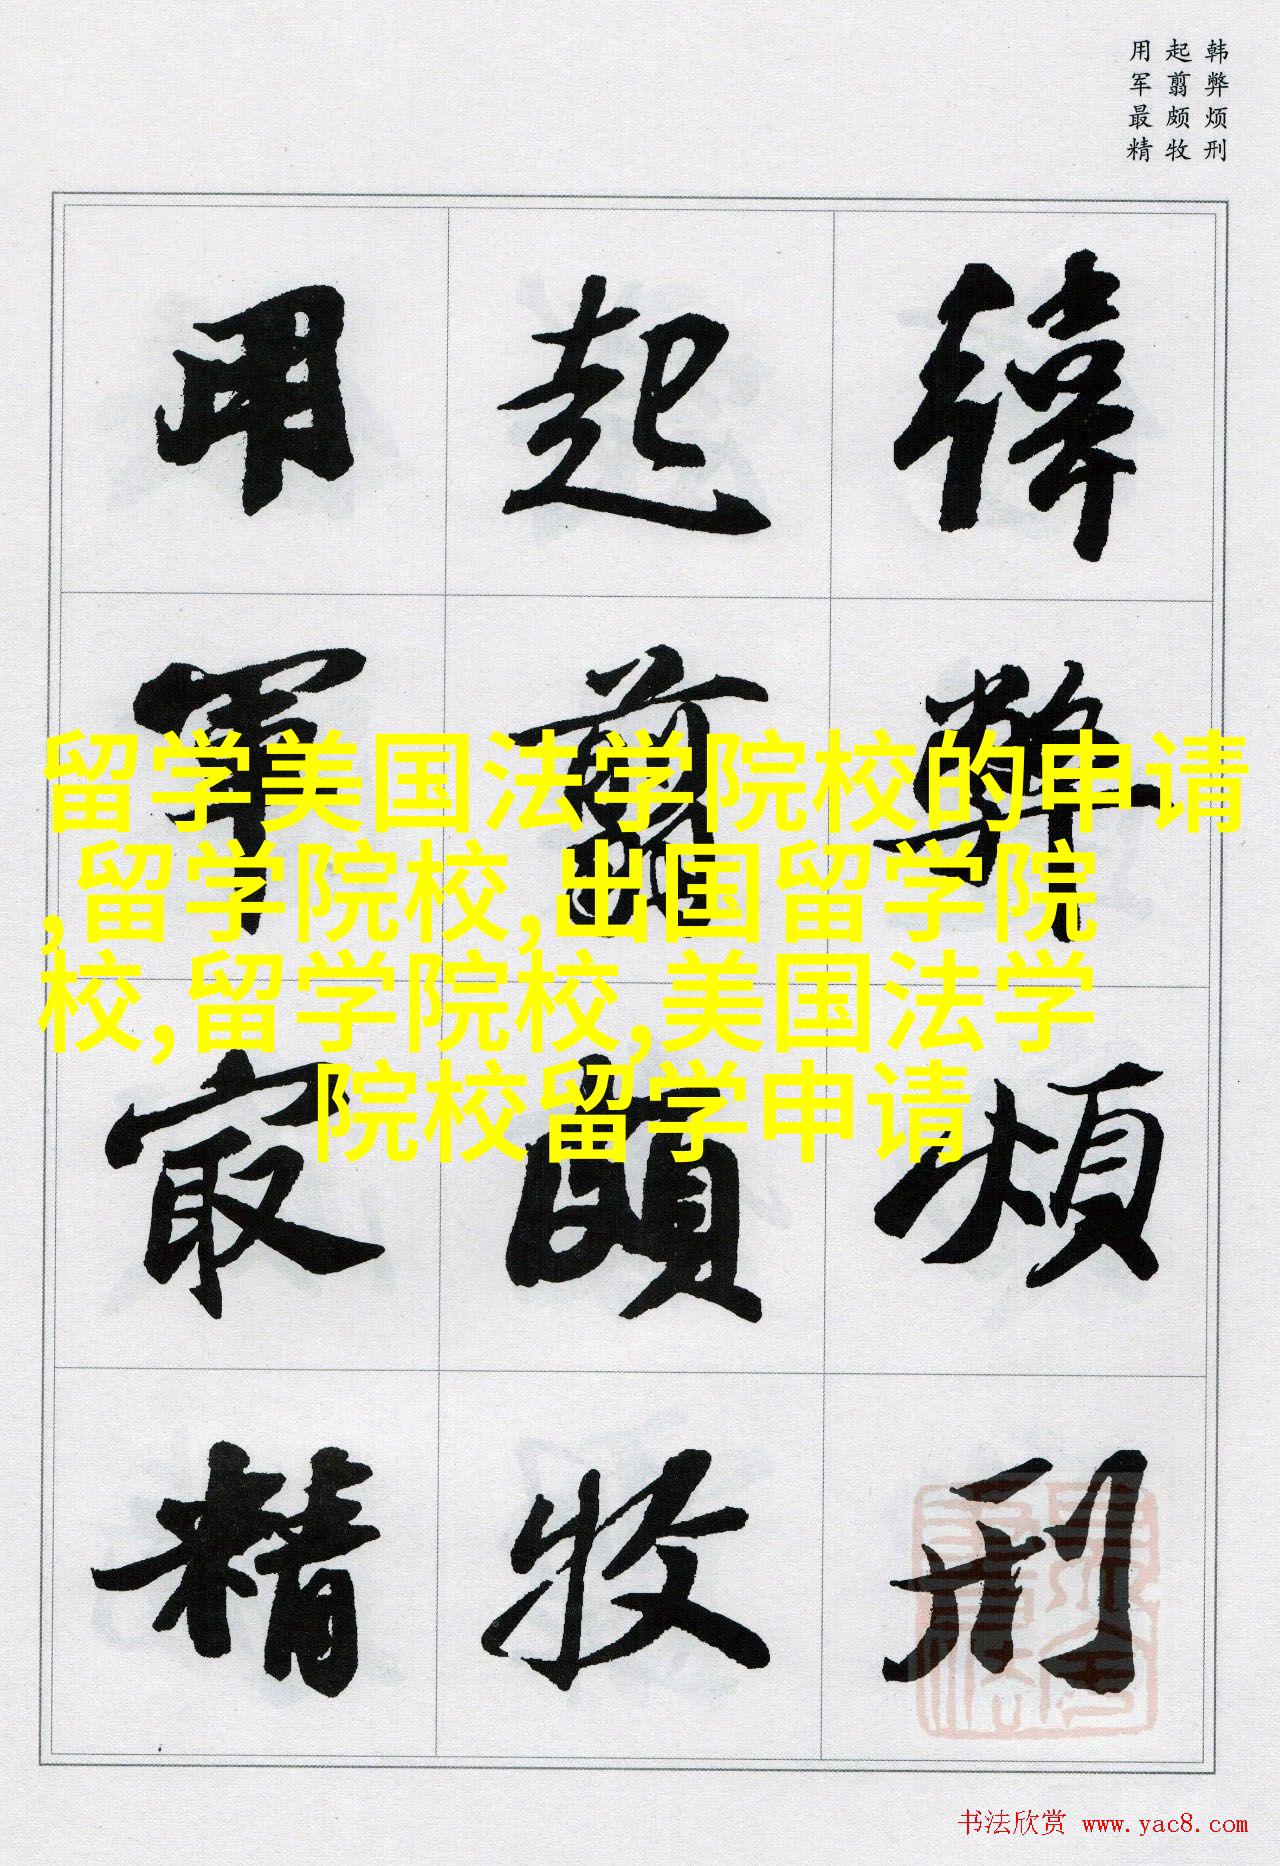 韩弊烦刑
起翦颇牧
用军最精
韓弊煩刑
起翦頗牧
用軍最精
留学美国法学院校的申请
,留学院校,出国留学院
校,留学院校,美国法学
院校留学申请
书法欣赏 www.yac8.com